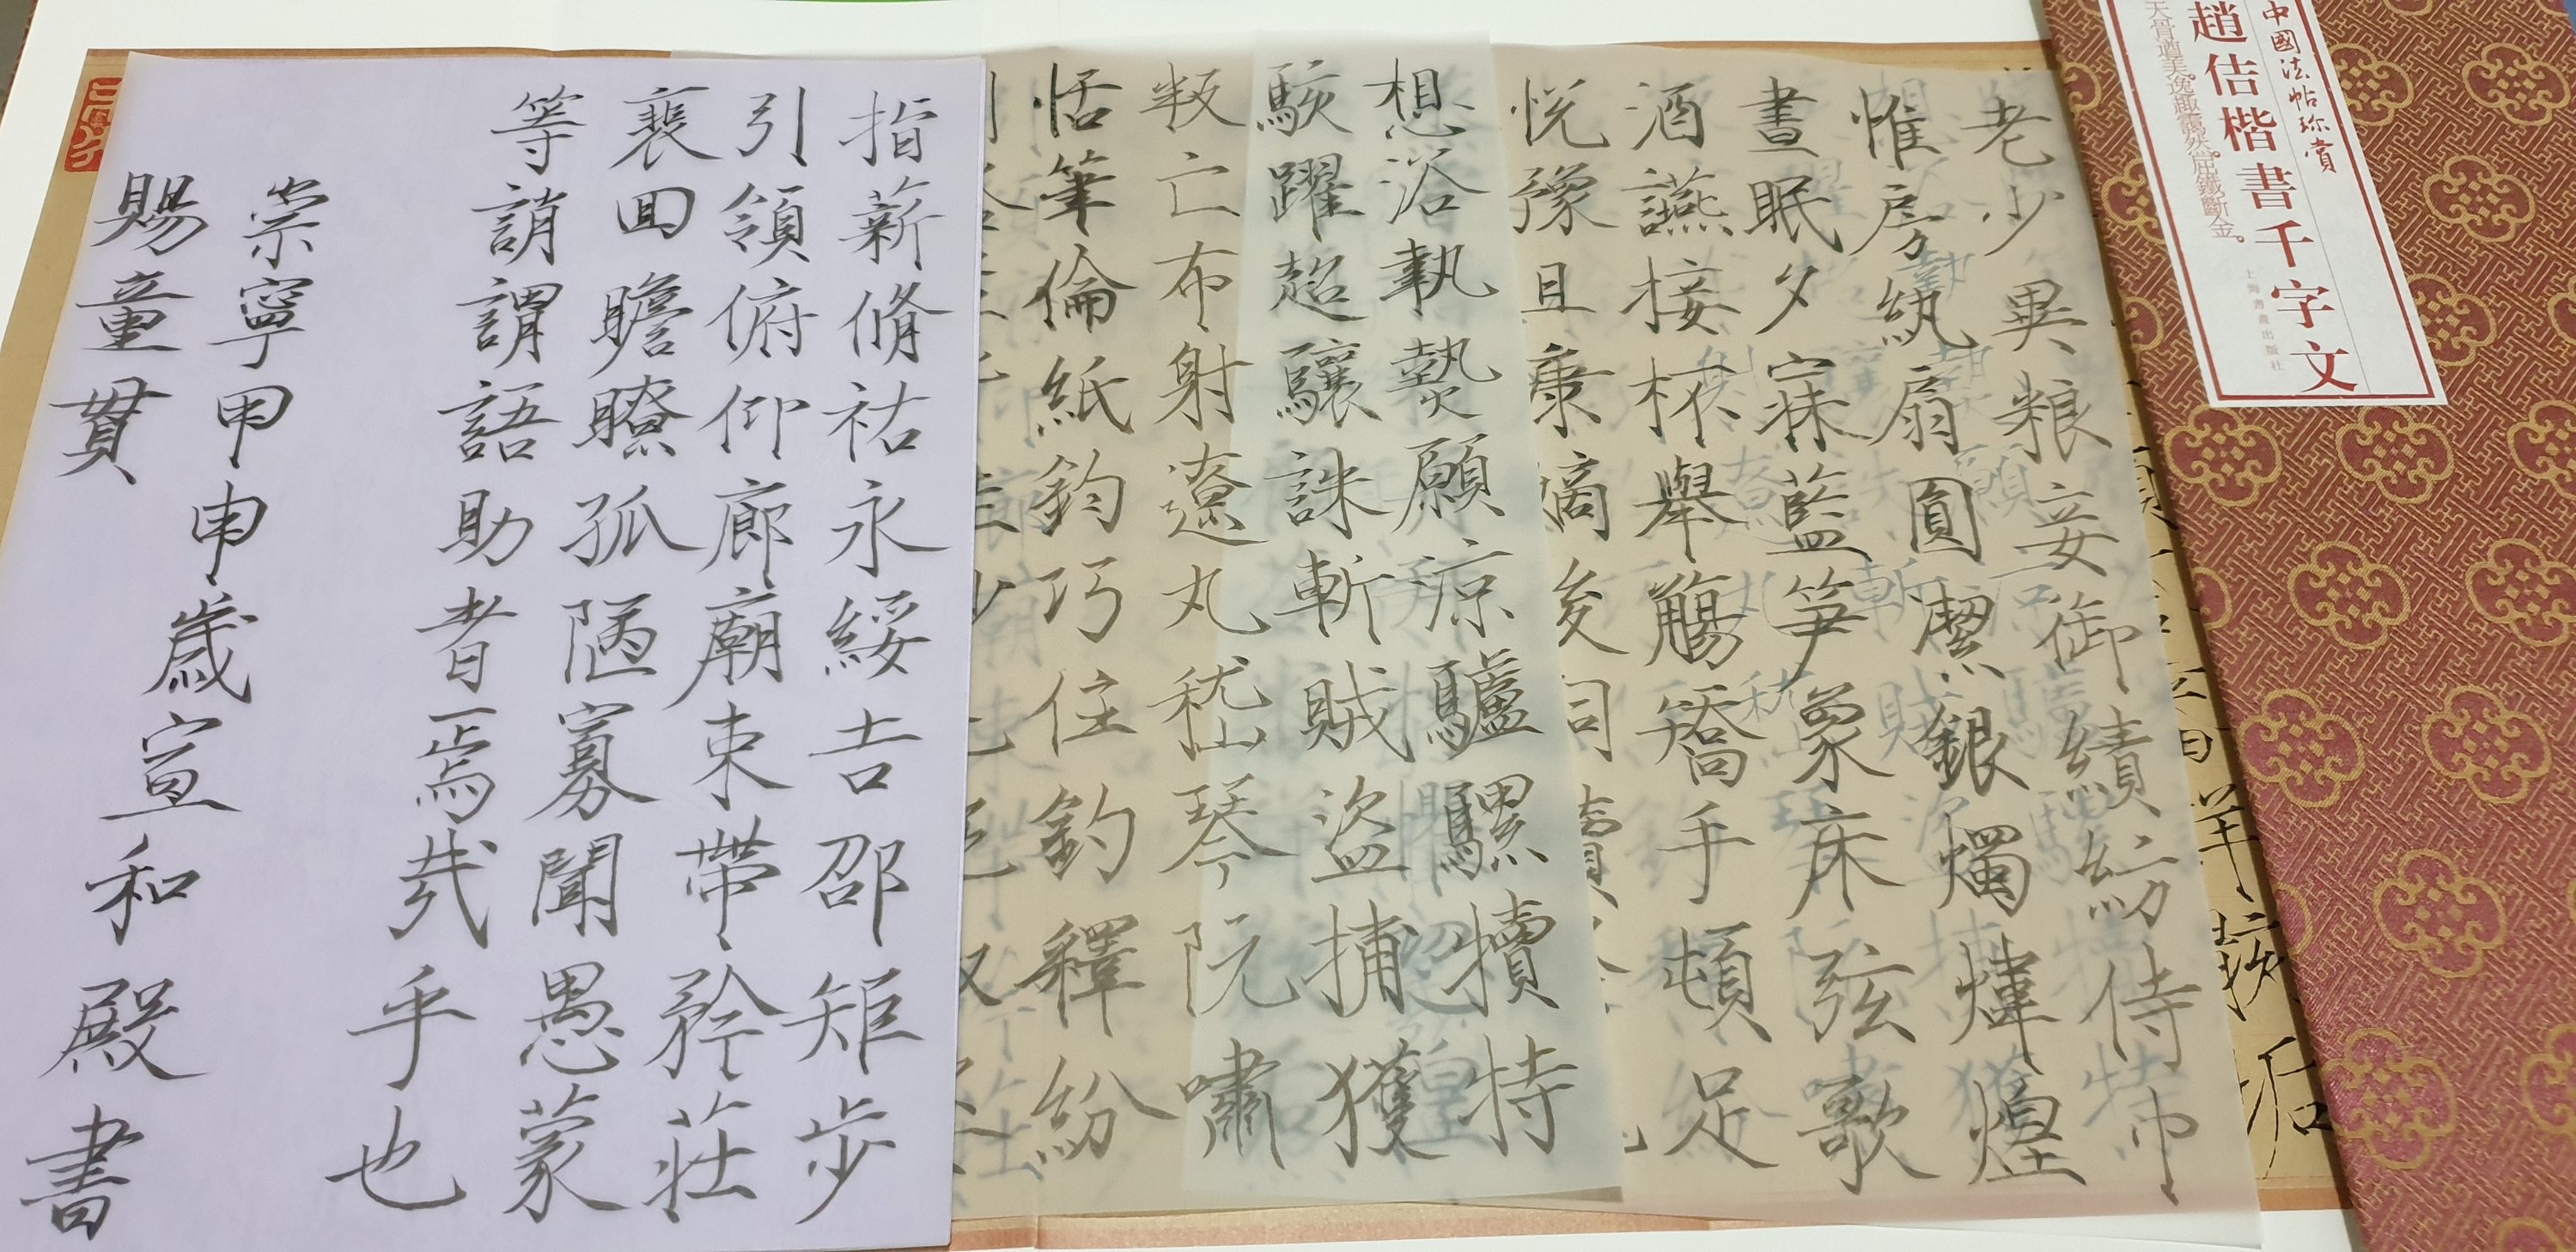 中國法帖珍賞
趙佶楷書千字文
天骨遒美。逸趣靄然。屈鐵斷金。
上海書畫出版社
老少異粮妾御績紡侍巾
惟房紈扇圓潔銀燭煒煌
晝眠夕寐藍笋象床弦歌
酒讌接杯舉觴矯手頓足
悅豫且康嫡後
想浴執熱願凉驢騾犢特
駭躍超驤誅斬賊盜捕獲
叛亡布射遼丸嵇琴阮嘯
恬筆倫紙鈞巧任釣釋紛
指薪脩祜永綏吉邵矩步
引領俯仰廊廟束帶矜莊
裵回瞻瞭孤陋寡聞愚蒙
等誚謂語助者焉哉乎也
崇寧甲申歲宣和殿書
賜童貫